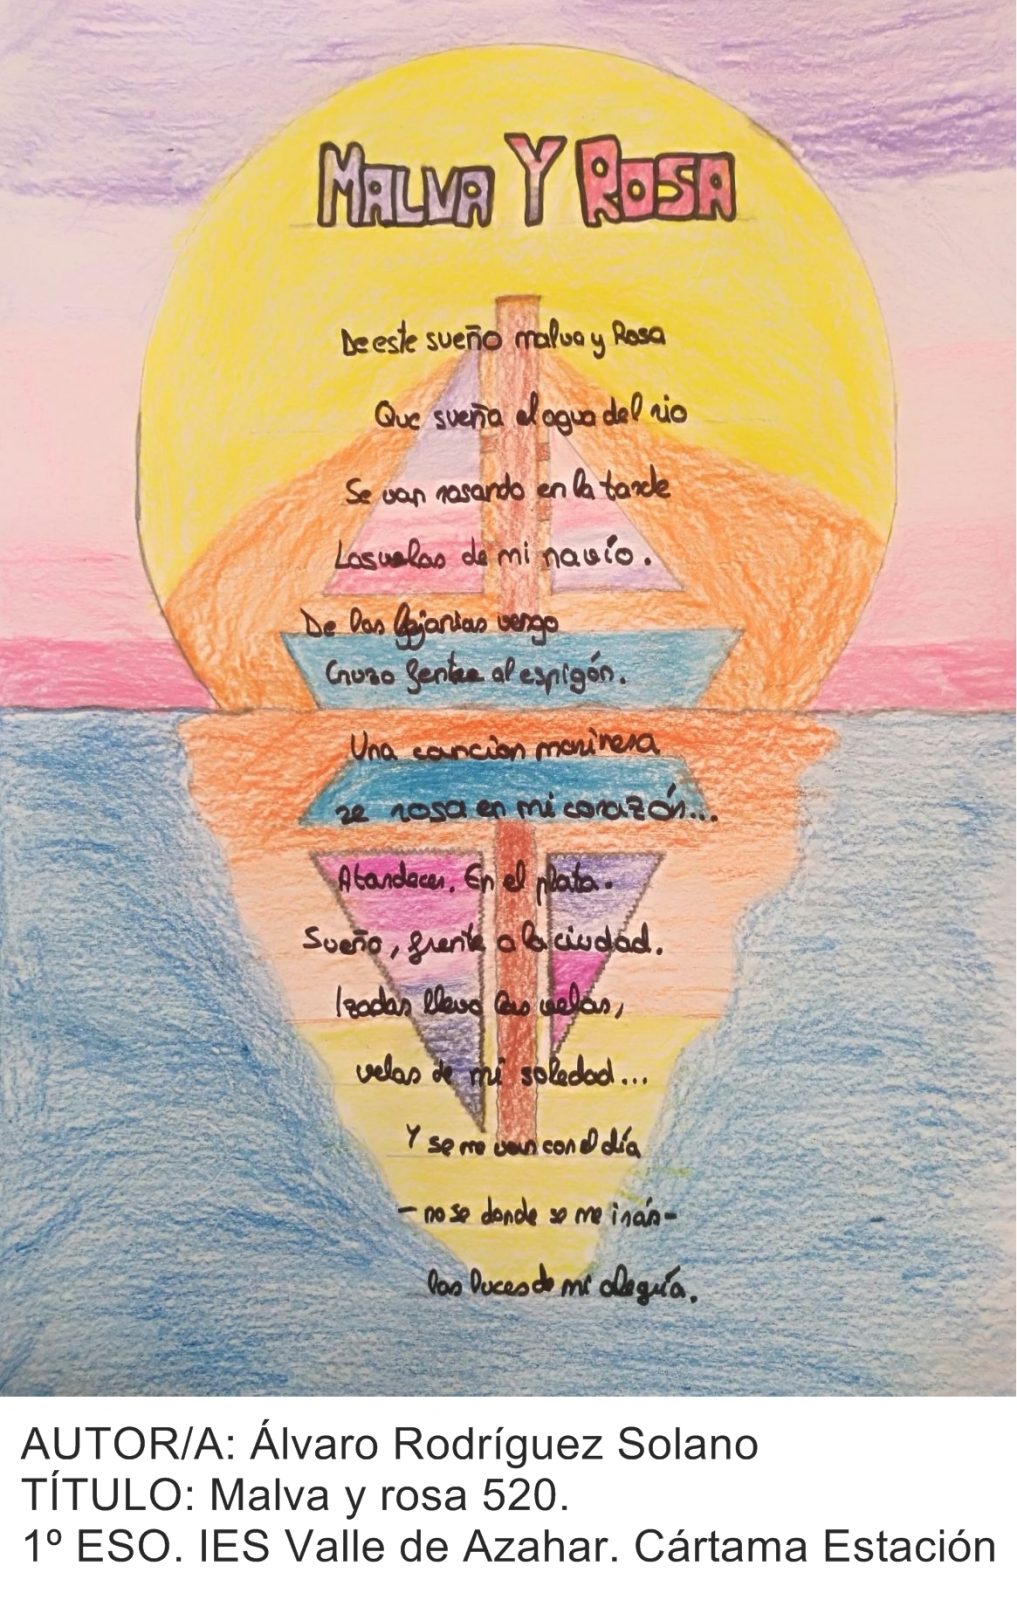 MALVA Y ROSA
De este sueño malva y Rosa
Que sueña el agua del rio
Se van rosando en la tarde
Las velas de mi navío.
De las lejanias vengo
Cruzo frente al espigón.
Una cancion marinera
se rosa en mi corazón...
Atardecer. En el plata.
Sueño, frente a la ciudad.
Izadas llevo las velas,
velas de mi soledad...
Y se me van con el día
- no se donde se me irán-
las luces de mi alegría.
AUTOR/A: Álvaro Rodríguez Solano
TÍTULO: Malva y rosa 520.
1º ESO. IES Valle de Azahar. Cártama Estación